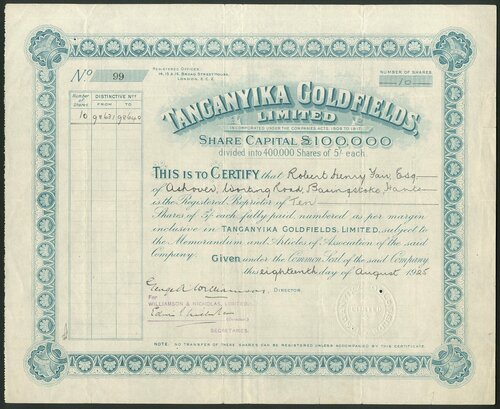 No 99
REGISTERED OFFICES:
14, 15 & 16, BROAD STREET HOUSE,
LONDON, E.C.2.
NUMBER OF SHARES
10
Number of Shares
DISTINCTIVE Nos
FROM TO
10 98631 98640
TANGANYIKA GOLDFIELDS,
LIMITED
INCORPORATED UNDER THE COMPANIES ACTS, 1908 TO 1917.
SHARE CAPITAL £100,000
divided into 400,000 Shares of 5/- each.
THIS IS TO CERTIFY that Robert Henry Esq
of Ashover, Worting Road, Basingstoke, Hants
is the Registered Proprietor of Ten
Shares of 5/- each, fully paid, numbered as per margin
inclusive in TANGANYIKA GOLDFIELDS, LIMITED, subject to
the Memorandum and Articles of Association of the said
Company. Given under the Common Seal of the said Company
this eighteenth day of August 1925
Williamson, DIRECTOR.
For
WILLIAMSON & NICHOLAS, LIMITED
(Director)
SECRETARIES.
NOTE: NO TRANSFER OF THESE SHARES CAN BE REGISTERED UNLESS ACCOMPANIED BY THIS CERTIFICATE.